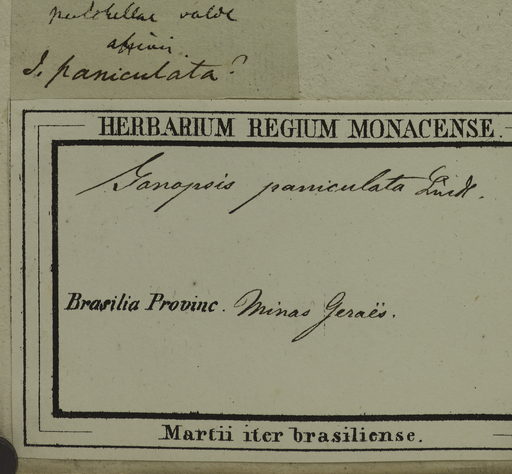 pulchellae valde
affinis
I. paniculata?
HERBARIUM REGIUM MONACENSE.
Jonopsis paniculata Lindl.
Brasilia Provinc. Minas Geraës.
Martii iter brasiliense.